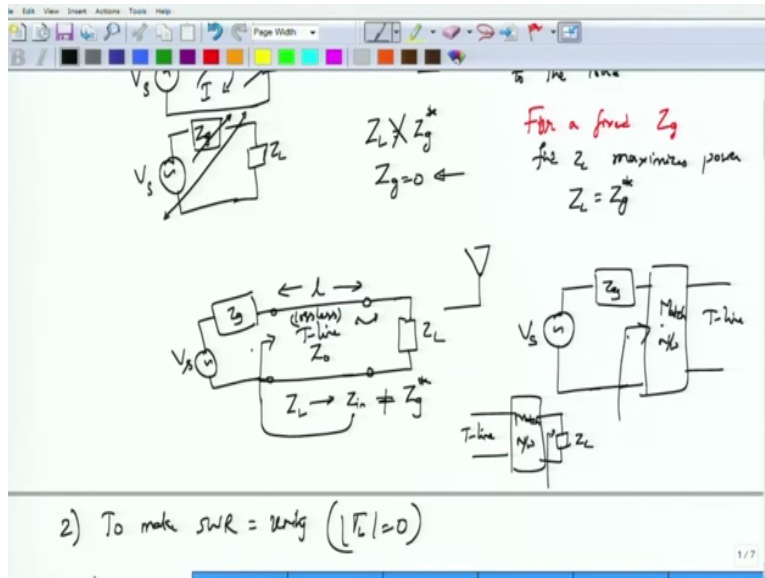 File Edit View Insert Actions Tools Help
Page Width
B I
V_S I
to the line
Z_g Z_L V_S
Z_L Z_g^*
Z_g=0 ←
For a fixed Z_g
Z_L maximizes power
Z_L = Z_g^*
← l →
Z_g (lossless)
T-line
Z_0
V_S Z_L
Z_L → Z_in ≠ Z_g^*
Z_g
V_S Match n/w T-line
T-line Match N/w Z_L
2) To make SWR = unity (|Γ_L|=0)
1/7